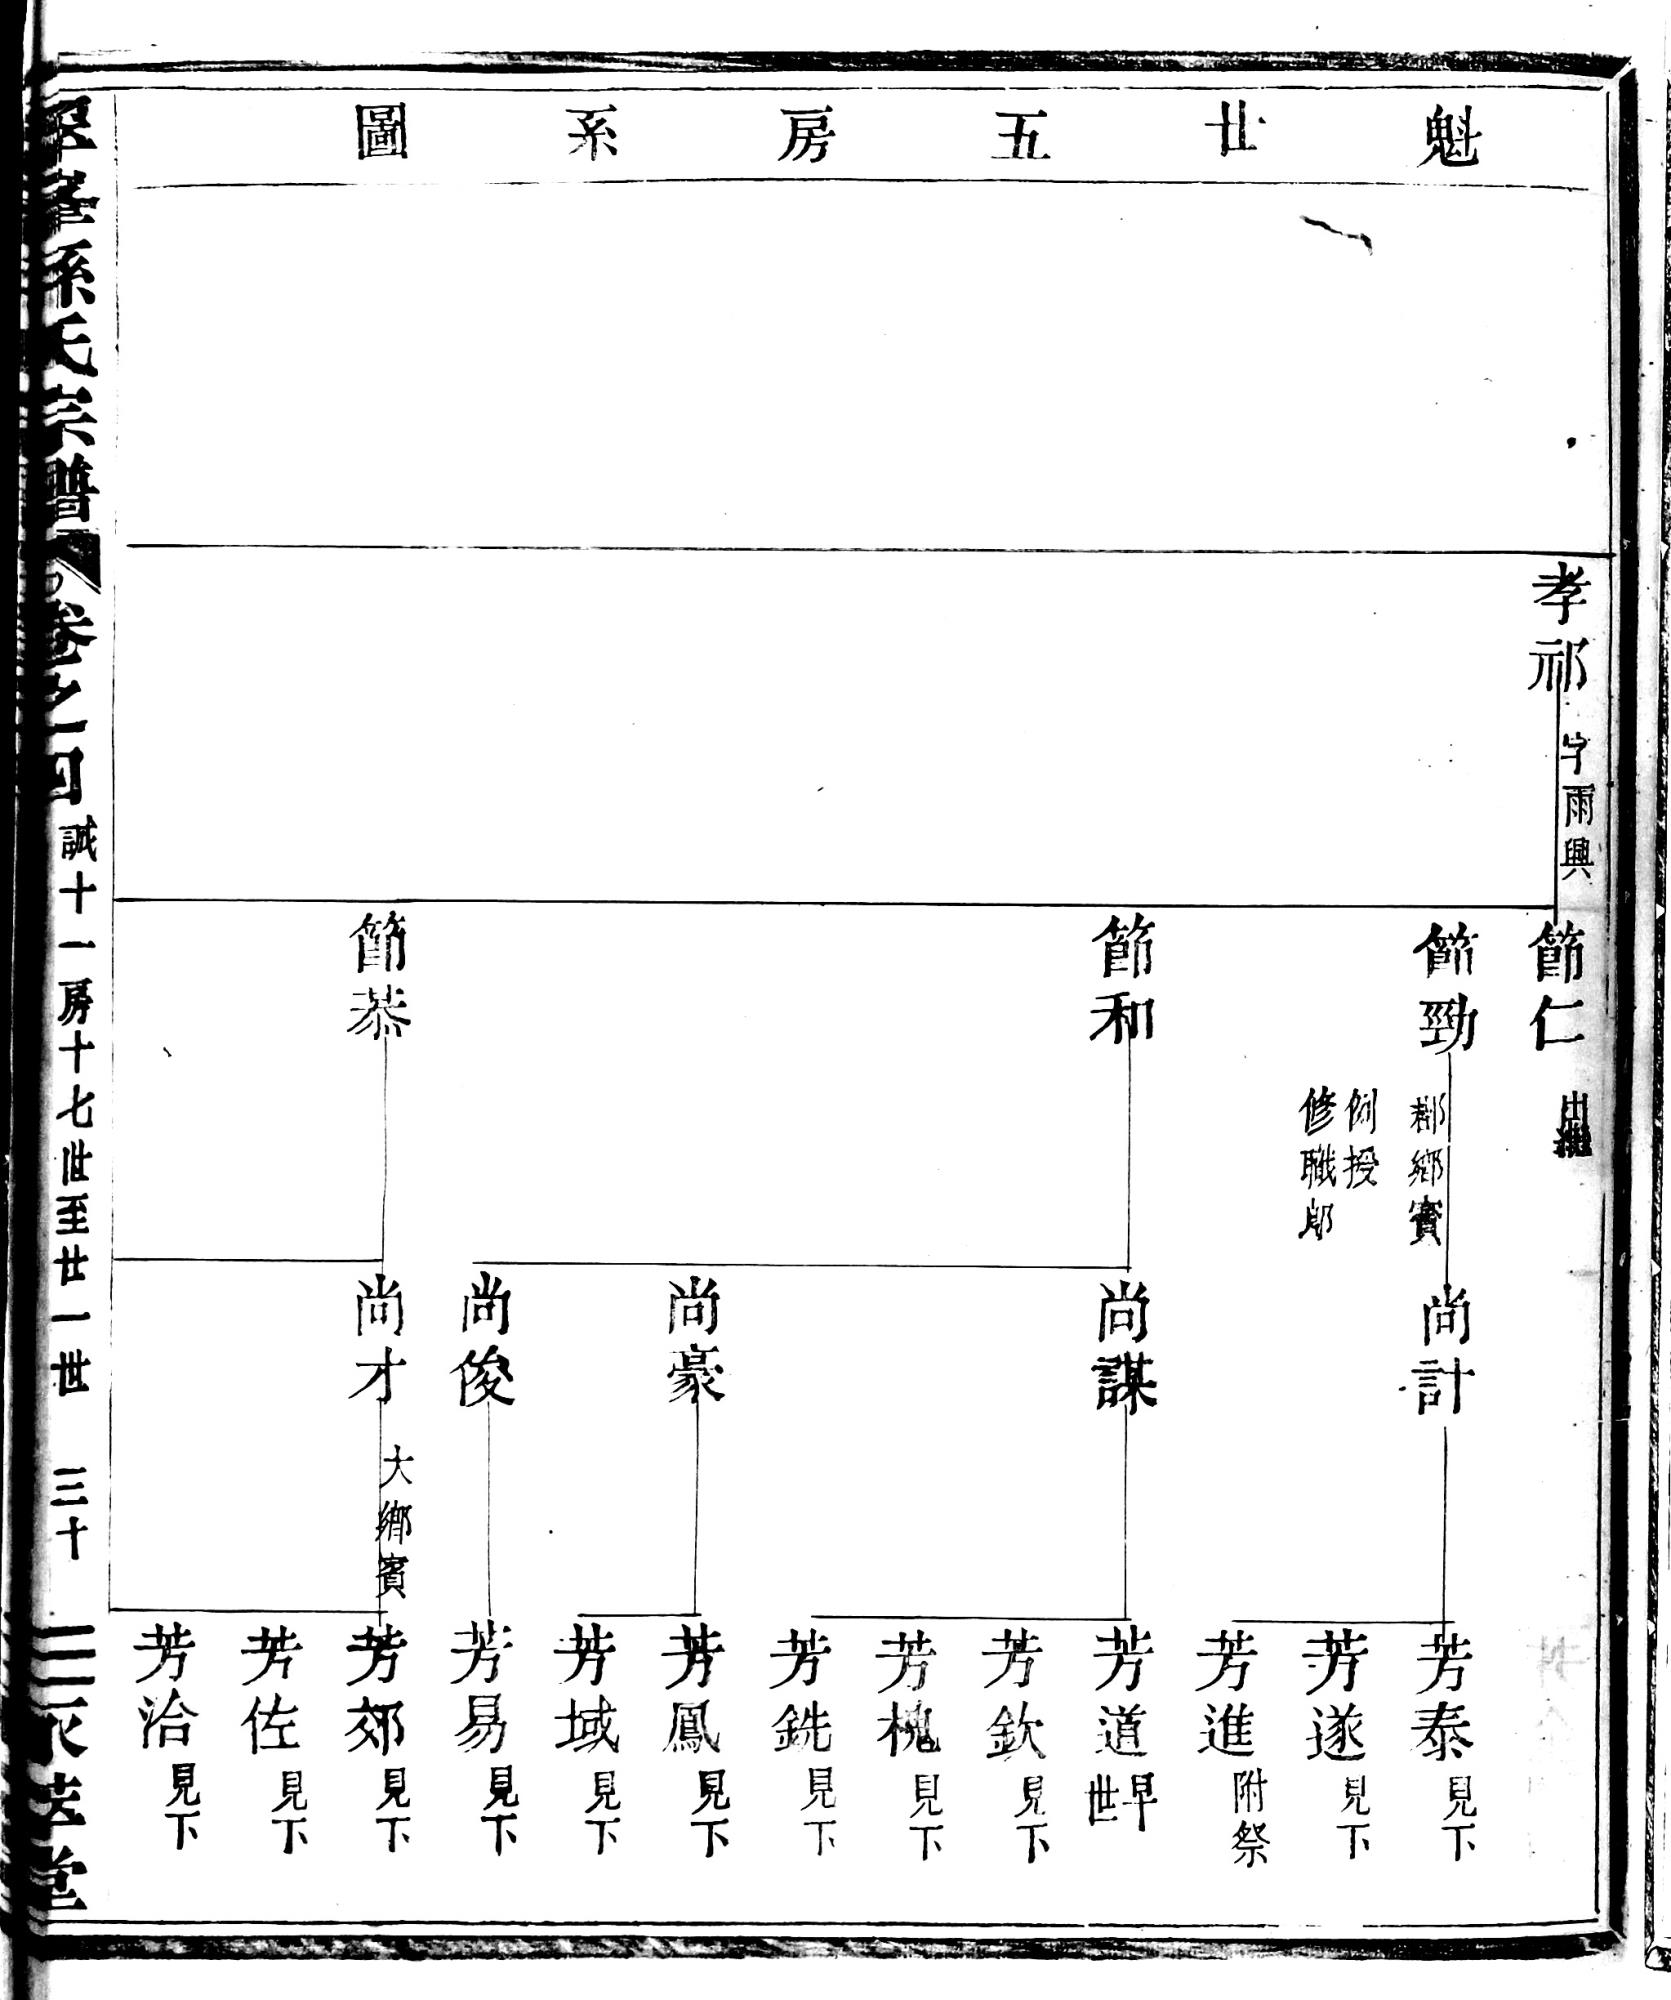 魁廿五房系圖
孝祁
字雨興
節仁
出繼
節勁
郡鄉賓
例授
修職郎
節和
節恭
尚計
尚謀
尚豪
尚俊
尚才
大鄉賓
芳泰 見下
芳遂 見下
芳進 附祭
芳道 早世
芳欽 見下
芳槐 見下
芳銑 見下
芳鳳 見下
芳域 見下
芳易 見下
芳郊 見下
芳佐 見下
芳洽 見下
峯孫氏宗譜
卷之四
誠十一房十七世至廿一世
三十
堂